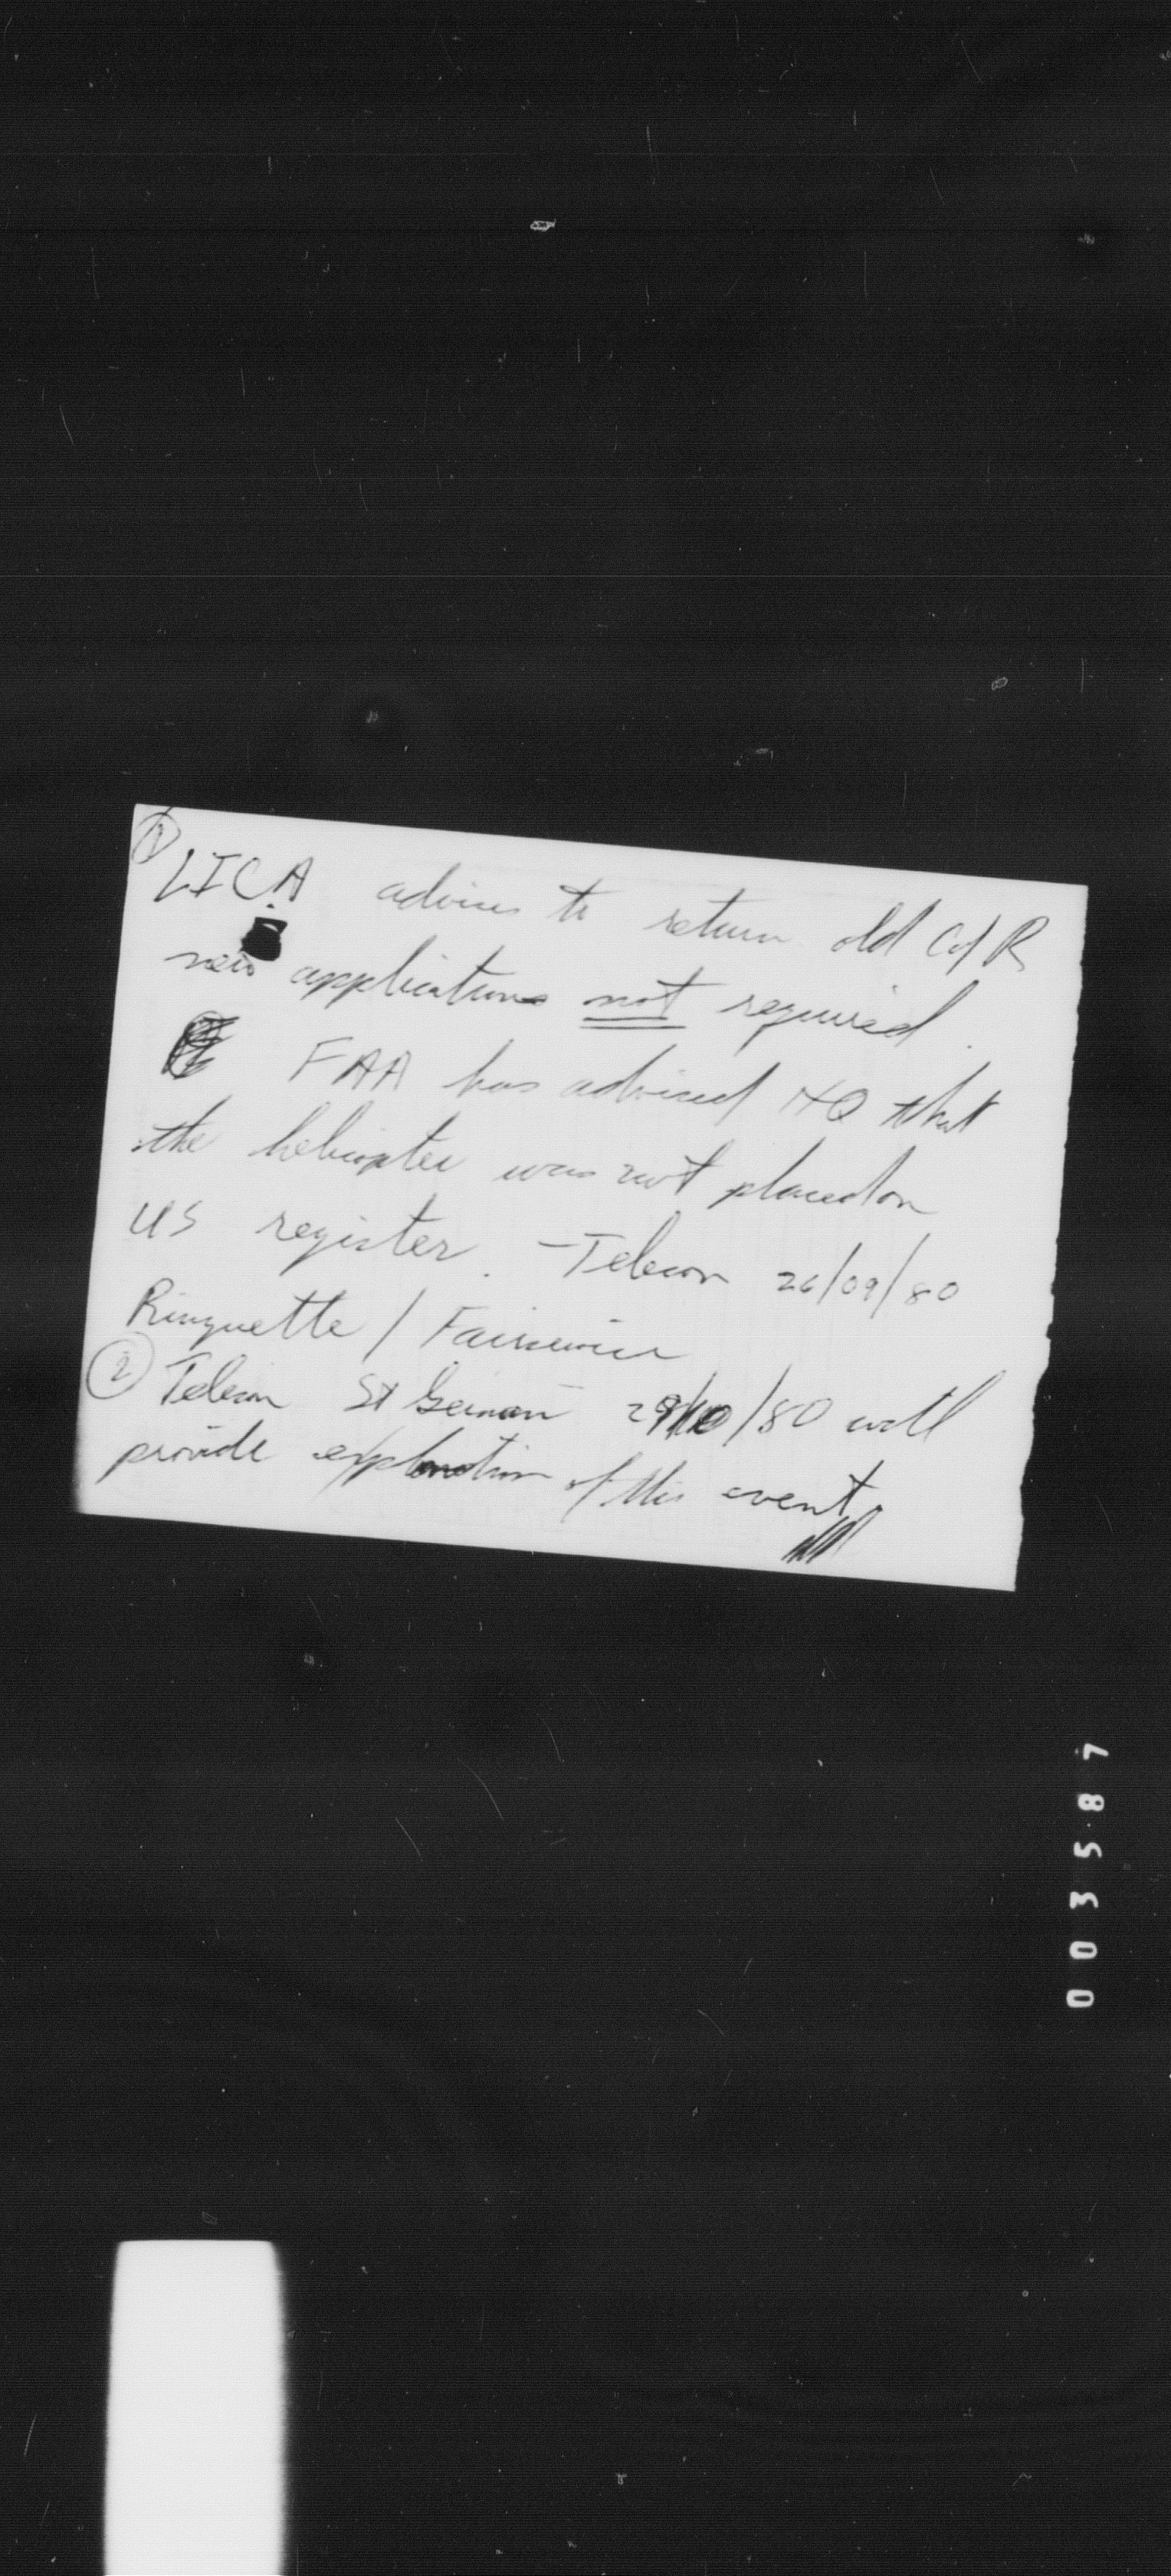 ①
LICA advises to return old C of R
new application not required.
FAA has advised HQ that
the helicopter was not placed on
US register. - Telecon 26/09/80
Ringuette /
② Telecon St Germain 29/10/80 will
provide explanation of this event
003587